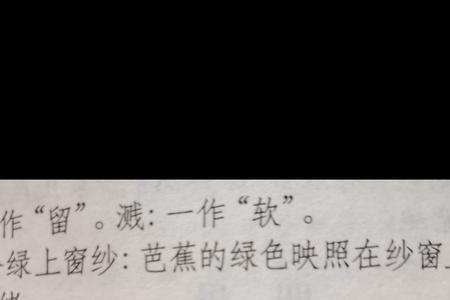 作“留”。溅：一作“软”。
绿上窗纱：芭蕉的绿色映照在纱窗上